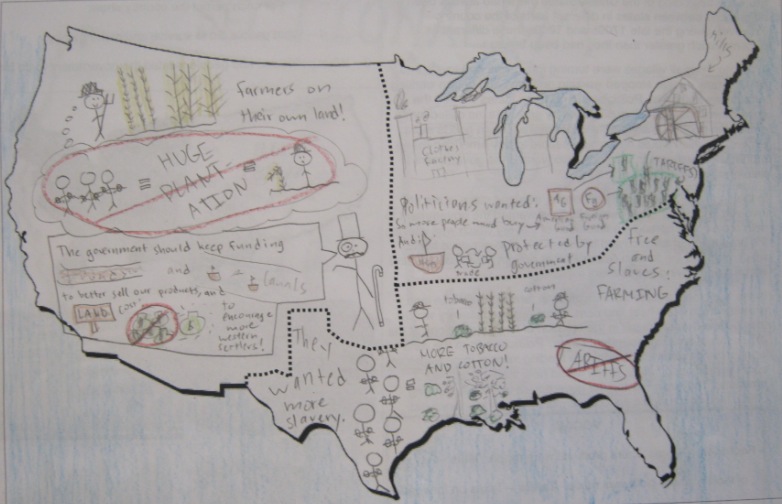 Farmers on
their own land!
HUGE
PLANT-
ATION
The government should keep funding
and = canals
to better sell our products, and
LAND cost
$
to
encourage
more
western
settlers!
They
wanted
more
slavery.
Clothes
Factory
Mills
TARIFFS
Politicians wanted:
So more people would buy
And
trade protected by
government
Free
and
slaves:
FARMING
tobacco
cotton
MORE TOBACCO
AND COTTON!
TARIFFS